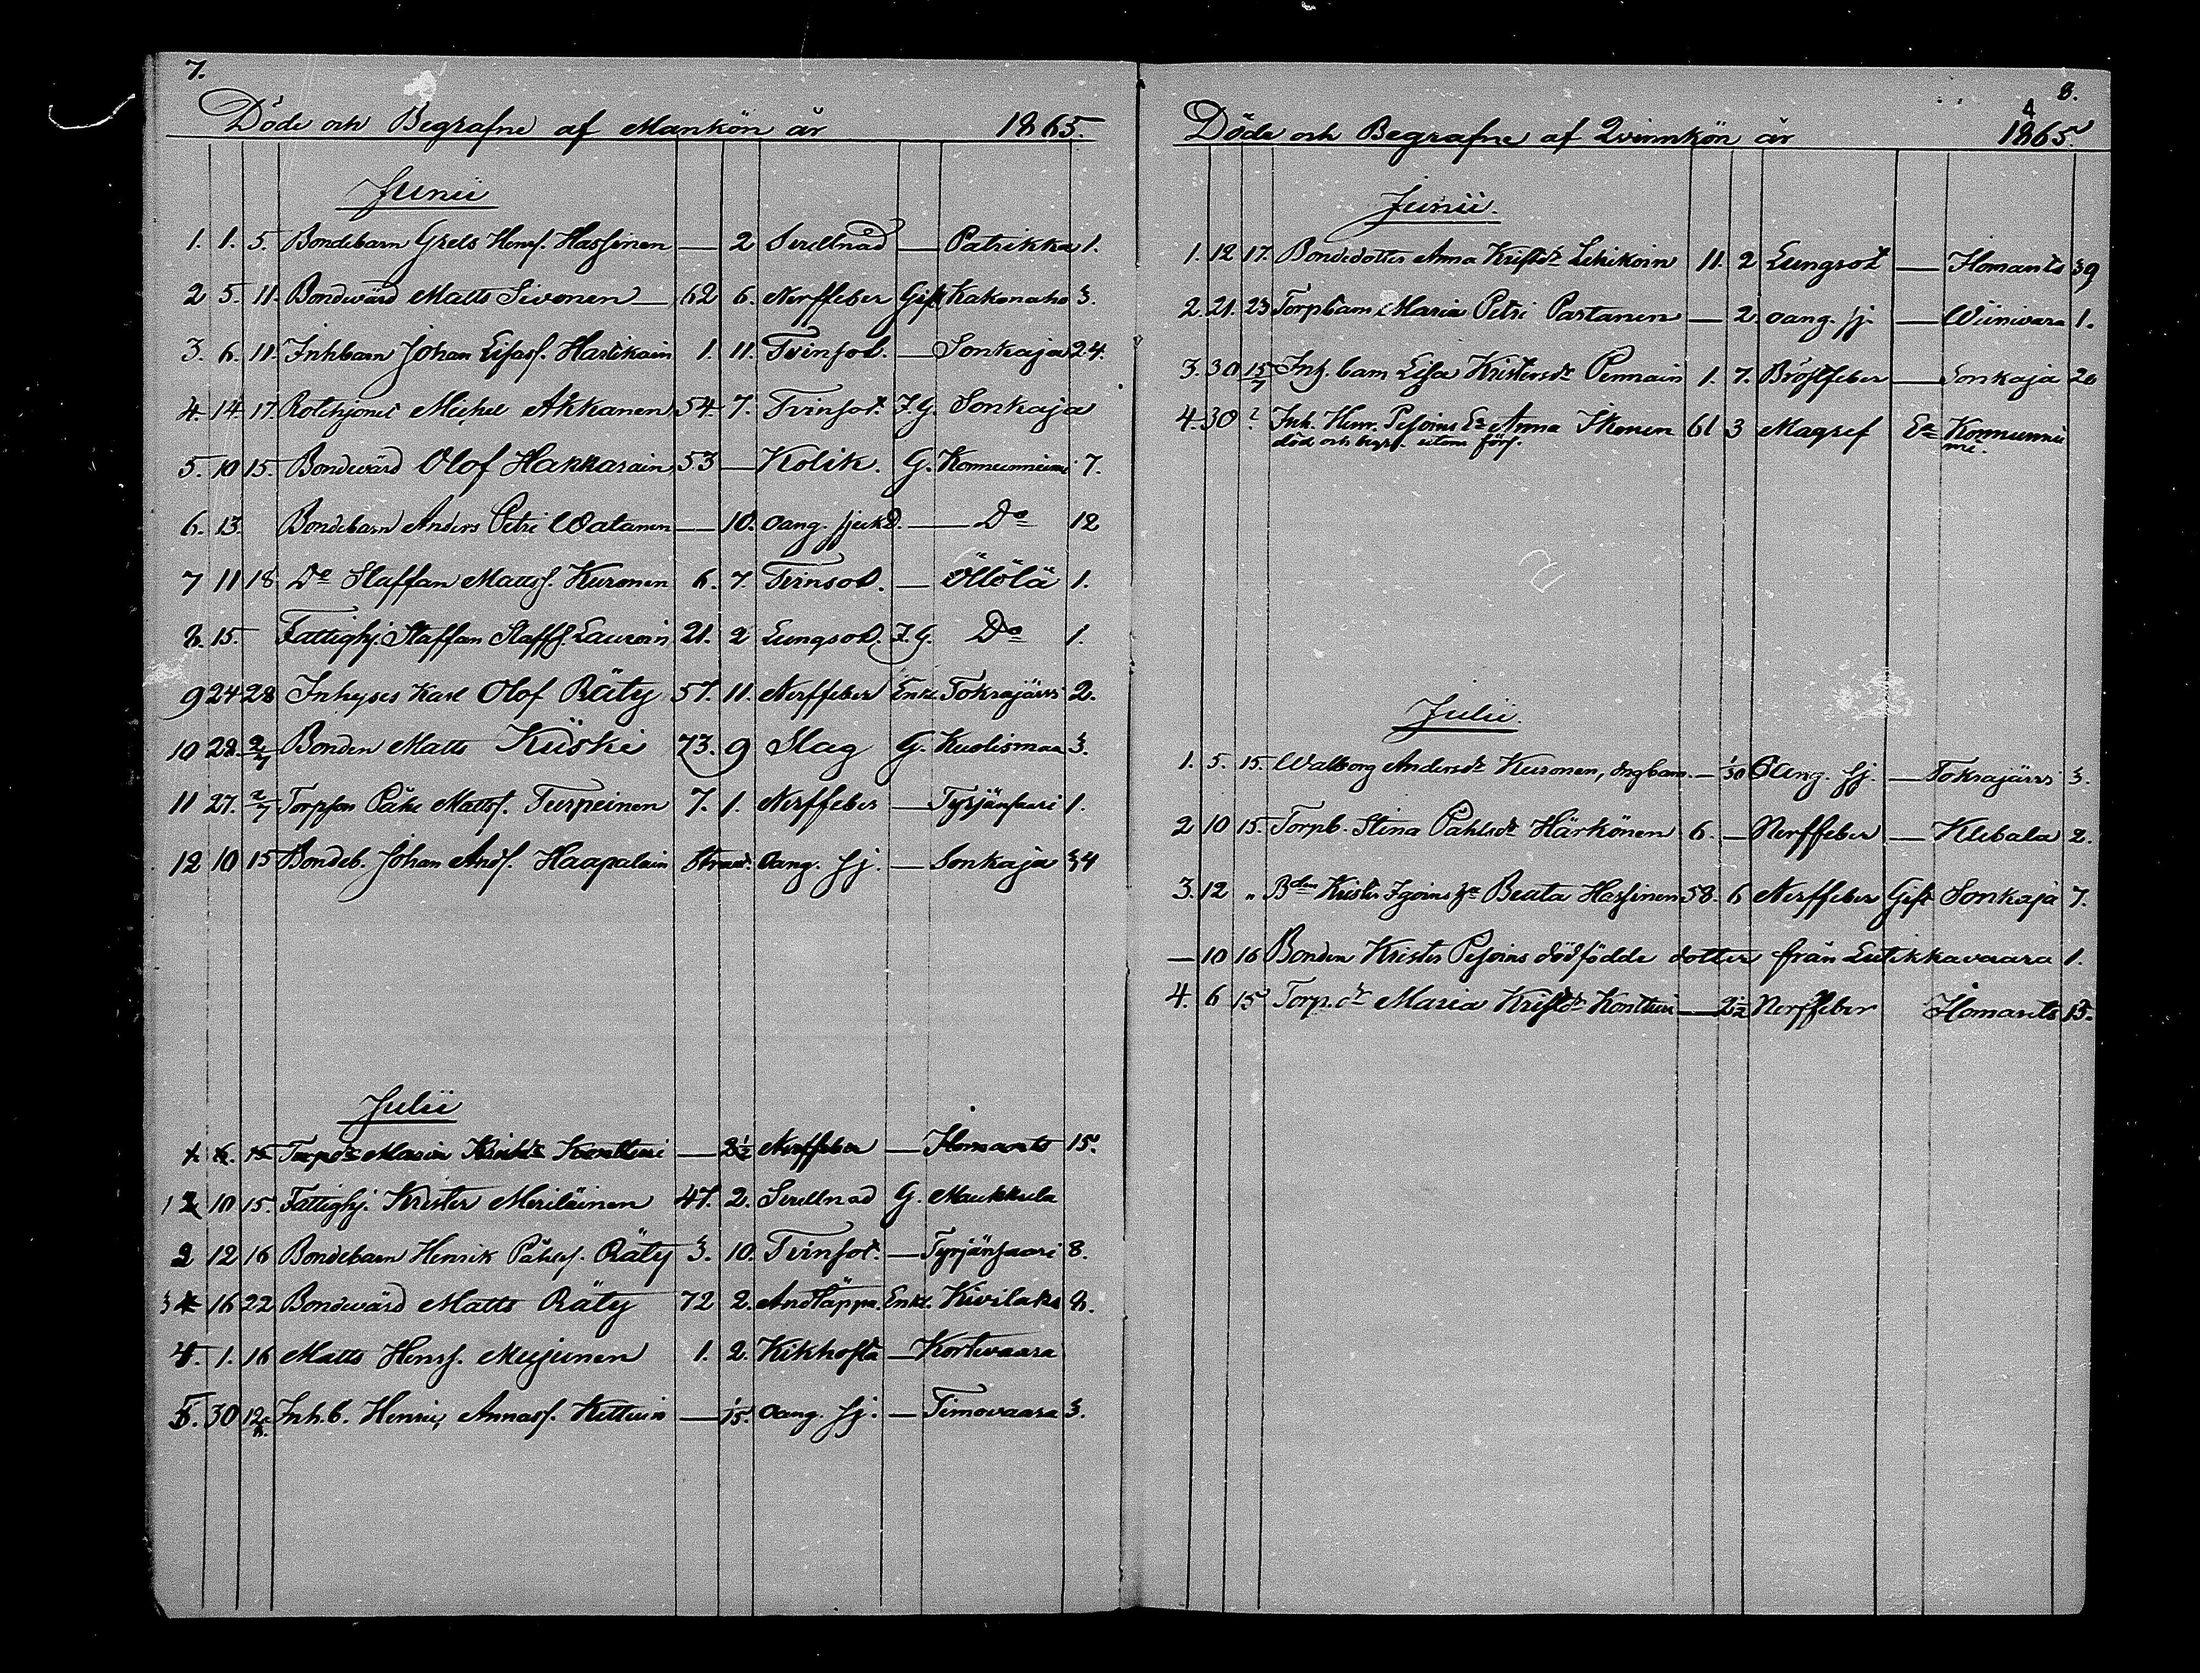 7.
Döde och Begrafne af Mankön år 1865.
Junii
1. 1. 5. Bondebarn Grels Henrs. Hassinen — 2 Srellnad — Patrikka 1.
2 5. 11. Bondevärd Matts Sivonen — 62 6. Nerffeber Gift Kakonaho 3.
3. 6. 11. Inhbarn Johan Lisas. Hartikain 1. 11. Tvinsot. — Sonkaja 24.
4 14 17. Rothjonet Michel Akkanen 54 7. Tvinsot. I.G. Sonkaja
5. 10 15. Bondevärd Olof Hakkarain 53 — Kolik. G. Konnunniemi 7.
6. 13. Bondebarn Anders Petri Watanen — 10. oang. sjukd. — Do 12
7 11 18 Do Staffan Matts. Kuronen 6. 7. Tvinsot. — Öllölä 1.
8. 15. Fattighj. Staffan Staffs. Lauroin 21. 2 Lungsot. I.G. Do 1.
9 24 28 Inhyses Karl Olof Räty 57. 11. Nerffeber Enkl. Tokrajärvi 2.
10 28. 2/7 Bonden Matts Kiiski 73. 9 Slag G. Kuolismaa 3.
11 27. 2/7 Torpson Påhl Matts. Turpeinen 7. 1. Nerffeber — Tyrjänsaari 1.
12 10 15 Bondeb. Johan Ands. Haapalain Oang. sj. — Sonkaja 34
Julii
1. 6. 15 Torpdr Maria Kristdr Kontturi — 2½ Nerffeber — Ilomants 15.
1 2 10 15. Fattighj. Krister Meriläinen 47. 2. Srellnad G. Maukkula
2 12 16 Bondebarn Henrik Påhls. Räty 3. 10. Tvinsot. — Tyrjänsaari 8.
3 4 16 22 Bondevärd Matts Räty 72 2. Andtäppa. Enkl. Kivilaks 8.
4. 1. 16 Matts Henrs. Mujunen 1. 2. Kikhosta — Kortevaara
5. 30 12/8. Inh.b. Henric Annas. Kettuin — 15. oang. sj. — Timovaara 3.
8.
Döde och Begrafne af Qvinnkön år 1865.
4
Junii.
1. 12 17. Bondedotter Anna Kristdr Lehikoin 11. 2 Lungsot — Ilomants 39
2. 21. 23 Torpbarn Maria Petri Partanen — 2. oang. sj. — Wiinivara 1.
3. 30 15/7 Inh. barn Lisa Kristersdr Pennain 1. 7. Bröstfeber — Sonkaja 20
4. 30 ? Inh. Henr. Pesoins Ea Anna Ikonen 61 3 Magref Ea Konnunniemi.
död och begr. utom förs.
Julii.
1. 5. 15. Walborg Andersdr Kuronen, — 1/30 Oang. sj. — Tokrajärvi 3.
2 10 15. Torpb. Stina Påhlsdr Härkönen 6. — Nerffeber — Klebala 2.
3. 12 " Bden Krister Igoins ha Beata Hassinen 58. 6 Nerffeber Gift Sonkaja 7.
— 10 16 Bonden Krister Pesoins dödfödde dotter från Lutikkavaara 1.
4. 6 15 Torp.dr Maria Kristdr Kontturi — 2½ Nerffeber Ilomants 15.